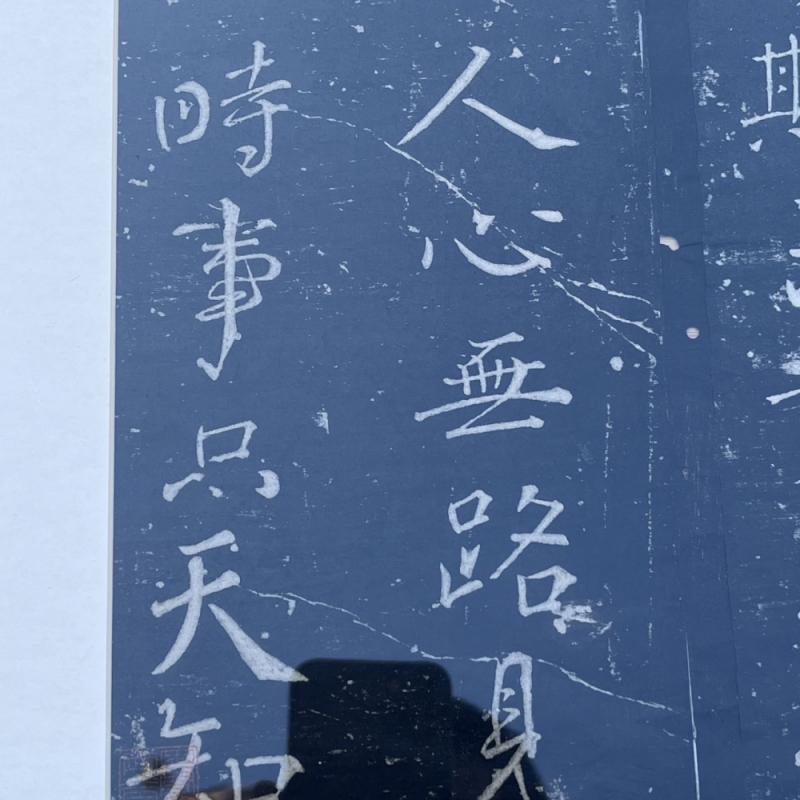 人心無路見
時事只天知